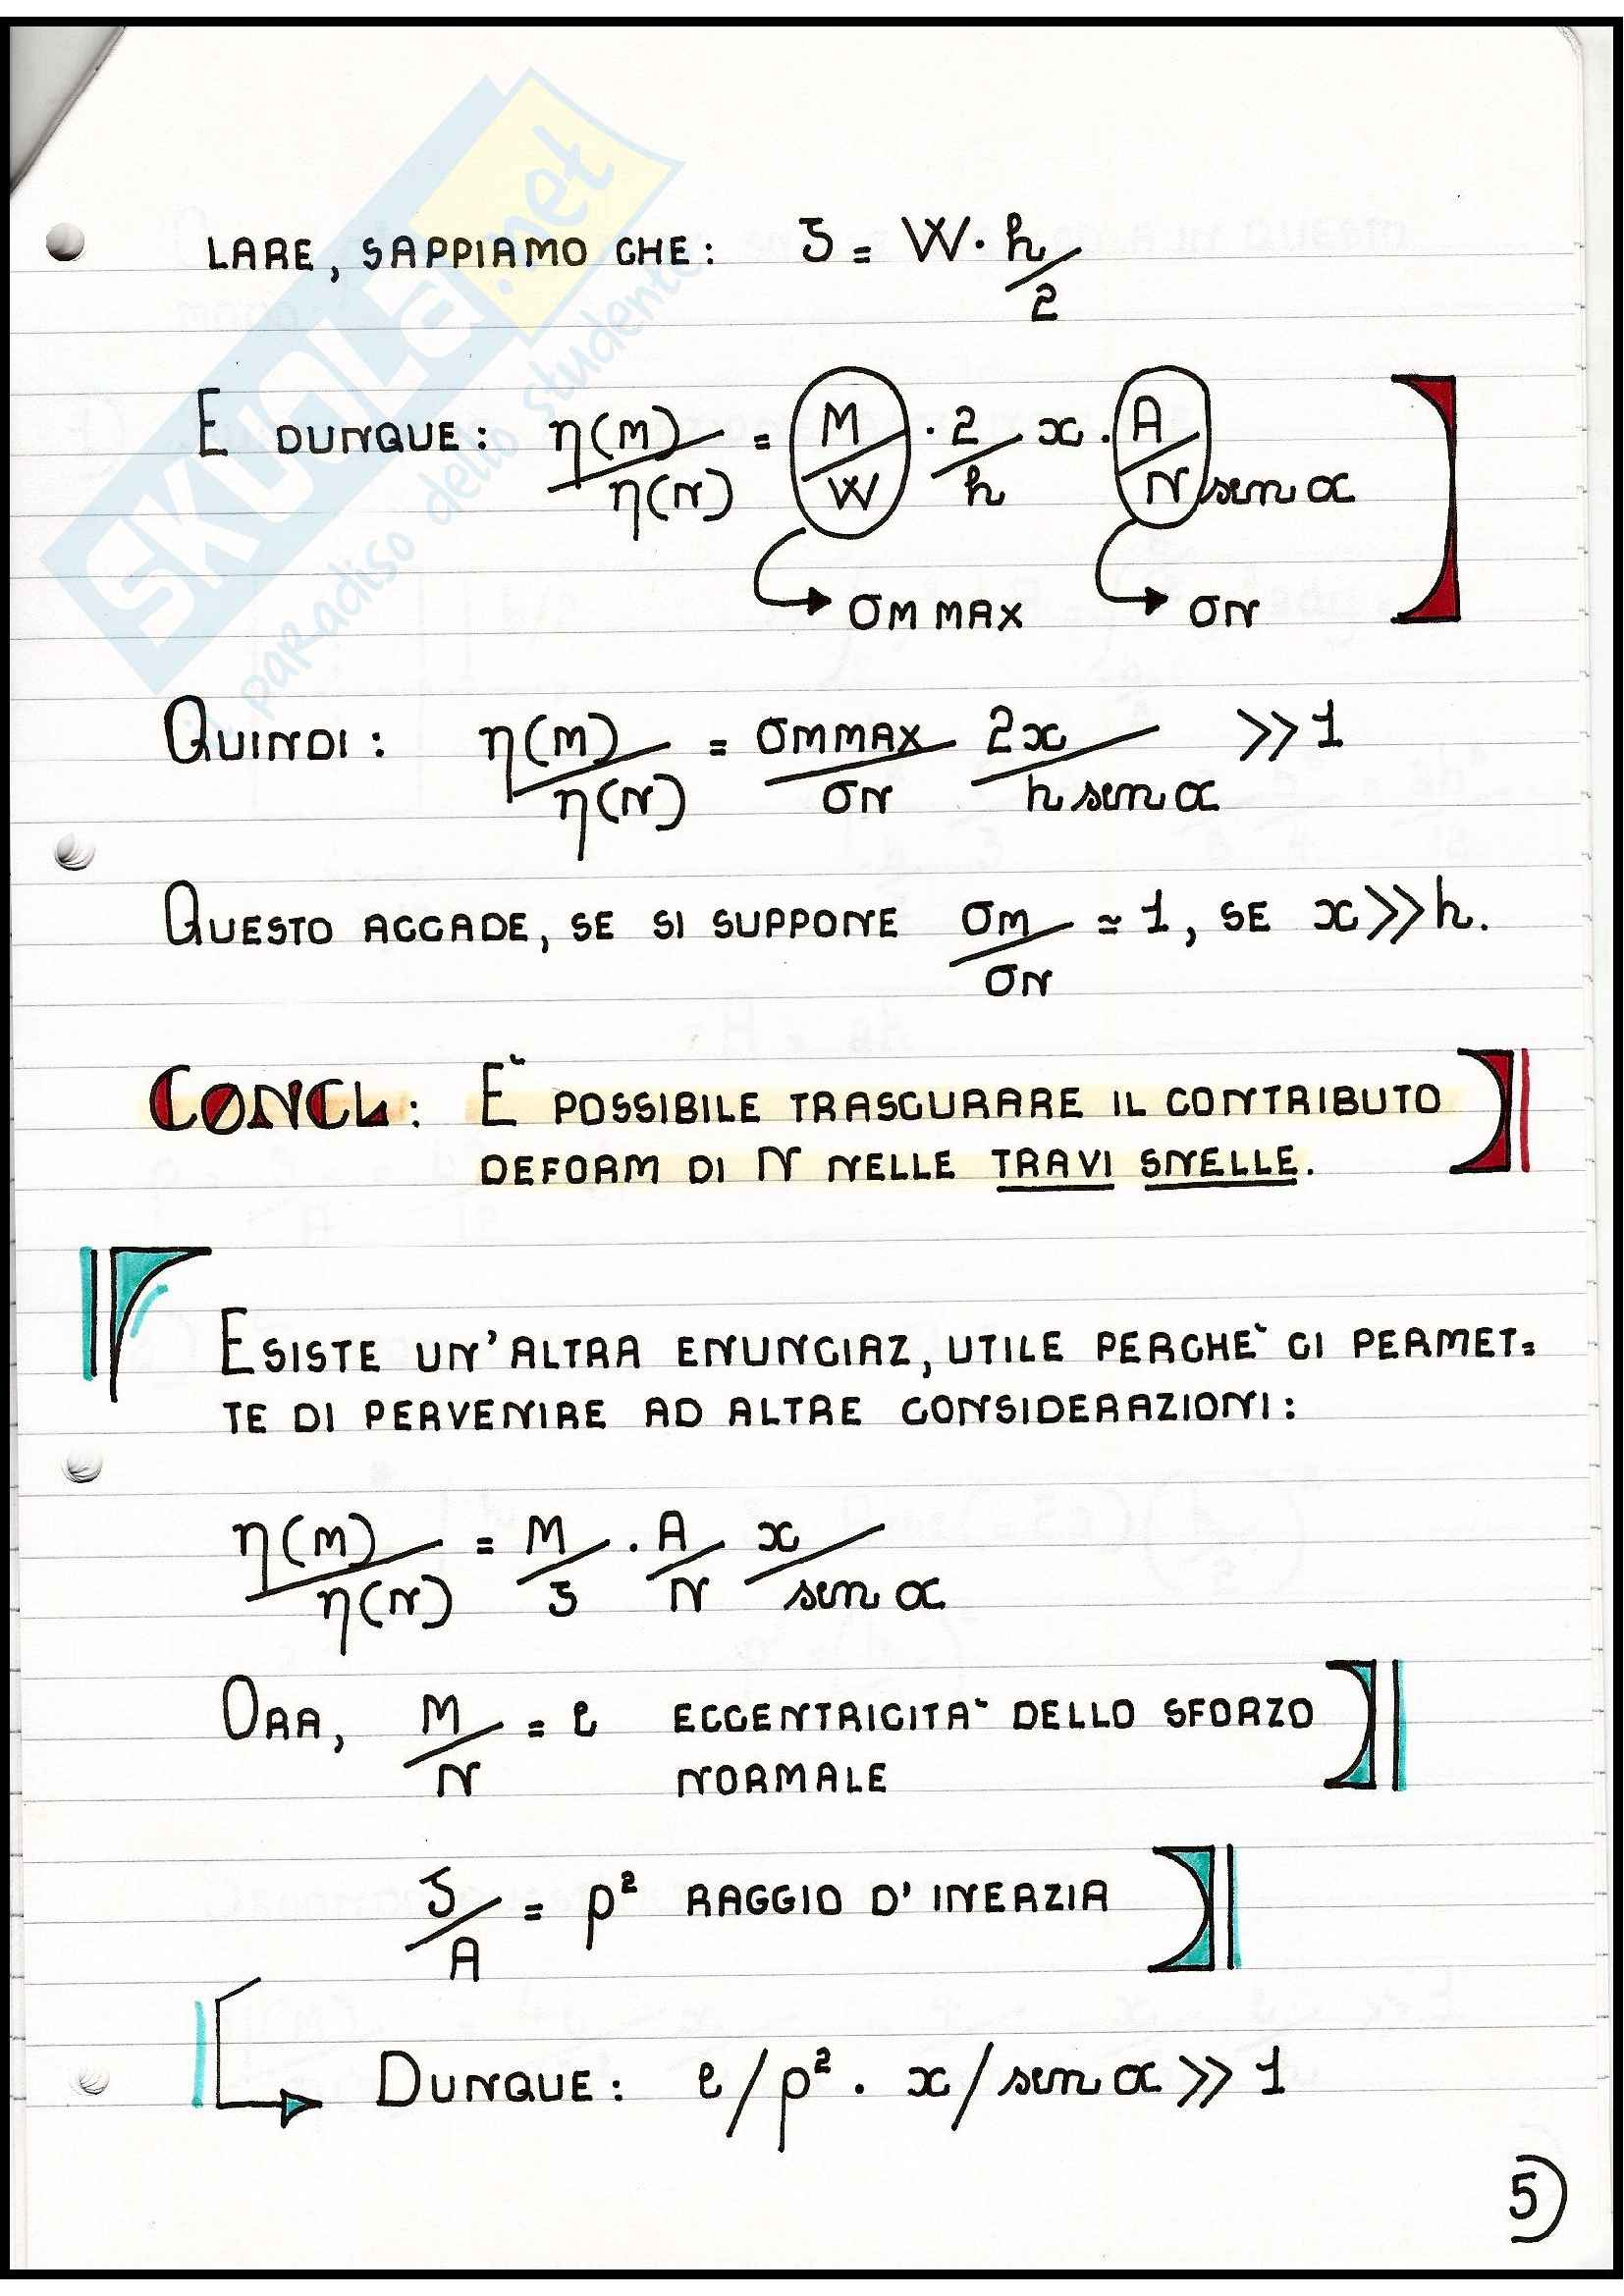 LARE, SAPPIAMO CHE: J = W · h/2
E DUNQUE: η(M)/η(N) = M/W · 2/h x · A/N sen α
σM MAX σN
QUINDI: η(M)/η(N) = σM MAX/σN 2x/h sen α >> 1
QUESTO ACCADE, SE SI SUPPONE σM/σN ≃ 1, SE x >> h.
CONCL: E` POSSIBILE TRASCURARE IL CONTRIBUTO
DEFORM DI N NELLE TRAVI SNELLE.
ESISTE UN'ALTRA ENUNCIAZ, UTILE PERCHE` CI PERMET=
TE DI PERVENIRE AD ALTRE CONSIDERAZIONI:
η(M)/η(N) = M/J · A/N x/sen α
ORA, M/N = e ECCENTRICITA` DELLO SFORZO
NORMALE
J/A = ρ² RAGGIO D'INERZIA
DUNQUE: e/ρ² · x/sen α >> 1
5)
SKUOLA.net
il paradiso dello studente